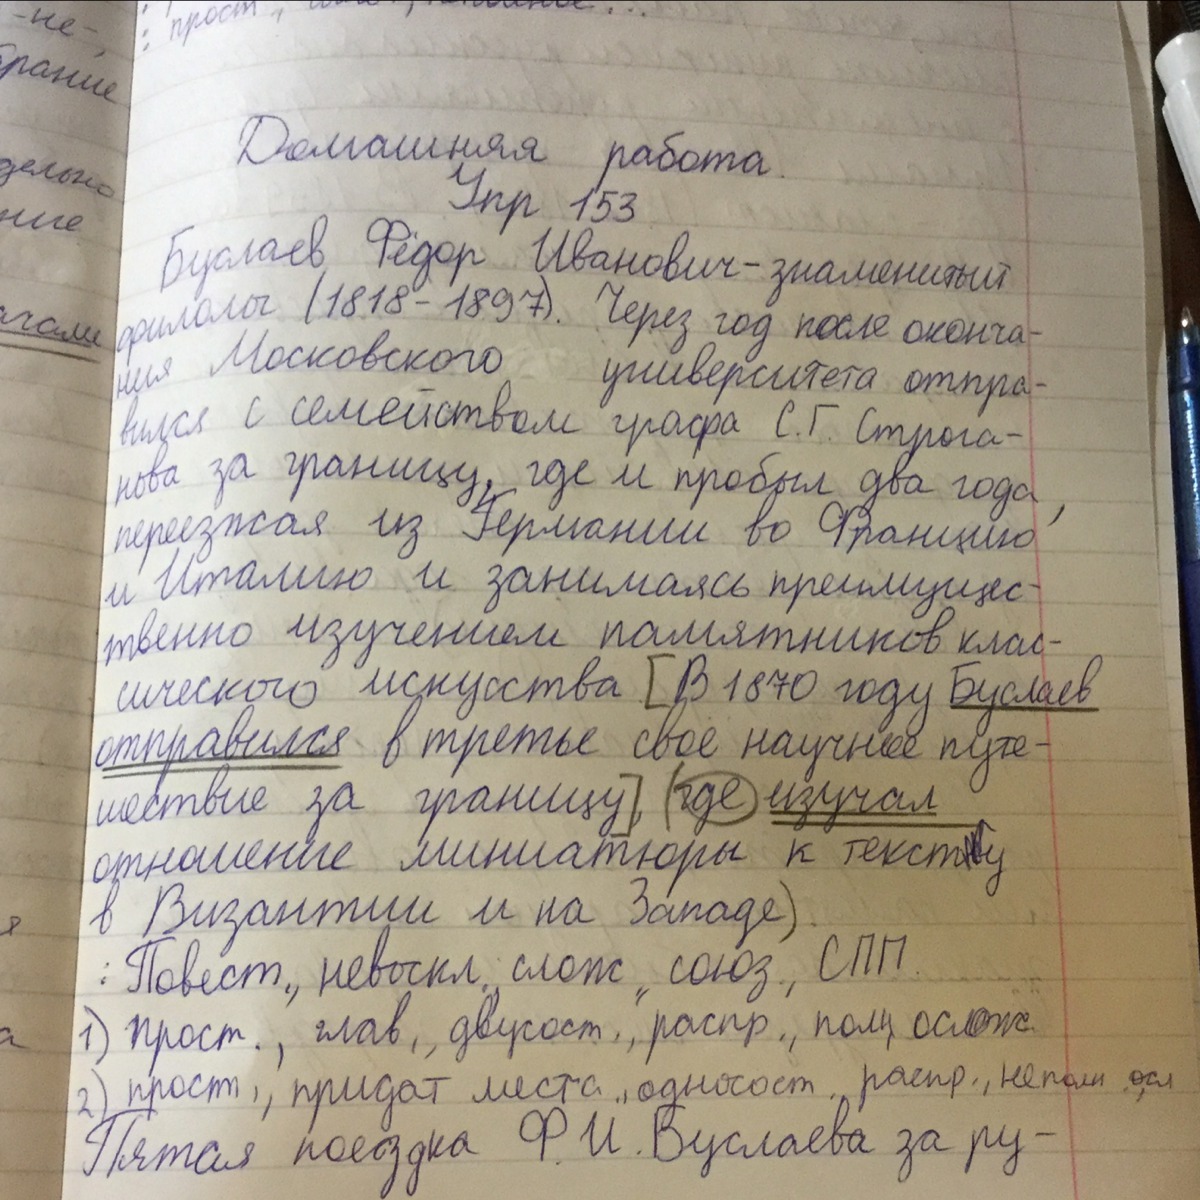 -не-,
брание
дельно
ние
ачами
прост.,
Домашняя работа.
Упр 153
Буслаев Фёдор Иванович-знаменитый
филолог (1818-1897). Через год после оконча-
ния Московского университета отпра-
вился с семейством графа С.Г. Строга-
нова за границу, где и пробыл два года,
переезжая из Германии во Францию
и Италию и занимаясь преимущес-
твенно изучением памятников клас-
сического искусства [В 1870 году Буслаев
отправился в третье своё научное путе-
шествие за границу], (где изучал
отношение миниатюры к тексту
в Византии и на Западе).
: Повест., невоскл., слож., союз., СПП.
1) прост., глав., двусост., распр., полн, ослож.
2) прост., придат места, односост., распр., неполн осл
Пятая поездка Ф.И.Буслаева за ру-